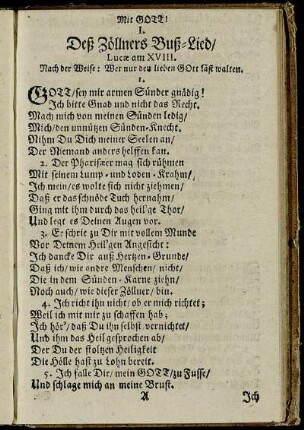 Mit GOTT!
I.
Deß Zöllners Buß-Lied/
Lucæ am XVIII.
Nach der Weise: Wer nur den lieben GOtt läst walten.
1.
GOTT/sey mir armen Sünder gnädig!
Ich bitte Gnad und nicht das Recht.
Mach mich von meinen Sünden ledig/
Mich/den unnützen Sünden-Knecht.
Nihm Du Dich meiner Seelen an/
Der Niemand anders helffen kan.
2. Der Phariseer mag sich rühmen
Mit seinem Lump- und Loden-Krahm/
Ich mein/es wolte sich nicht ziehmen/
Daß er das schnöde Tuch hernahm/
Ging mit ihm durch das heil'ge Thor/
Und legt es Deinen Augen vor.
3. Er schrie zu Dir mit vollem Munde
Vor Deinem Heil'gen Angesicht:
Ich dancke Dir auß Hertzen-Grunde/
Daß ich/wie andre Menschen/nicht/
Die in dem Sünden-Karne ziehn/
Noch auch/wie dieser Zöllner/bin.
4. Ich richt ihn nicht/ob er mich richtet;
Weil ich mit mir zu schaffen hab;
Ich hör'/daß Du ihn selbst vernichtet/
Und ihm das Heil gesprochen ab/
Der Du der stoltzen Heiligkeit
Die Höll hast zu Lohn bereit.
5. Ich falle Dir/mein GOTT/zu Fusse/
Und schlage mich an meine Brust.
A Ich